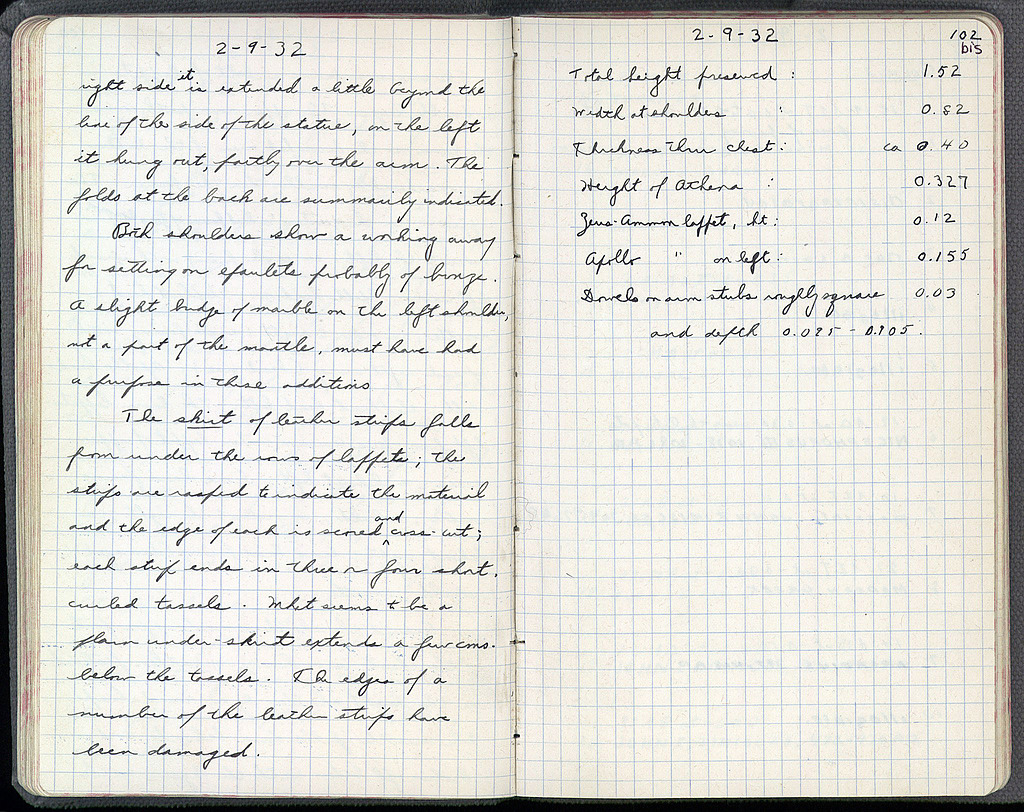 2-9-32
right side it is extended a little beyond the
line of the side of the statue, on the left
it hung out, partly over the arm. The
folds at the back are summarily indicated.
Both shoulders show a working away
for setting on epaulets probably of bronze.
A slight budge of marble on the left shoulder,
not a part of the mantle, must have had
a purpose in these additions
The skirt of leather strips falls
from under the rows of lappets; the
strips are rasped to indicate the material
and the edge of each is scored and cross-cut;
each strip ends in three or four short,
curled tassels. What seems to be a
plain under-skirt extends a few cms.
below the tassels. The edges of a
number of the leather strips have
been damaged.
2-9-32
102
bis
Total height preserved : 1.52
Width at shoulders : 0.82
Thickness thru chest : ca 0.40
Height of Athena : 0.327
Zeus-Ammon lappet, ht : 0.12
Apollo " on left : 0.155
Dowels on arm stubs roughly square 0.03
and depth 0.095 - 0.105.